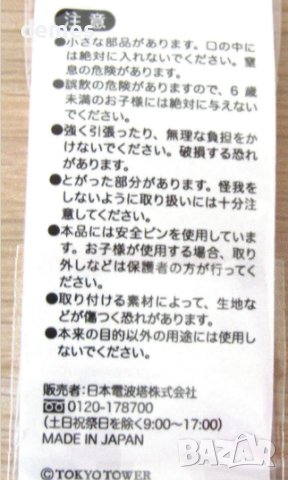 demos
注意
●小さな部品があります。口の中に
は絶対に入れないでください。窒
息の危険があります。
●誤飲の危険がありますので、6歳
未満のお子様には絶対に与えない
でください。
●強く引張ったり、無理な負担をか
けないでください。破損する恐れ
があります。
●とがった部分があります。怪我を
しないように取り扱いには十分注
意してください。
●本品には安全ピンを使用していま
す。お子様が使用する場合、取り
外しなどは保護者の方が行ってく
ださい。
●取り付ける素材によって、生地な
どが傷つく恐れがあります。
●本来の目的以外の用途には使用し
ないでください。
販売者:日本電波塔株式会社
0120-178700
(土日祝祭日を除く9:00~17:00)
MADE IN JAPAN
©TOKYO TOWER
BAZAR
bg